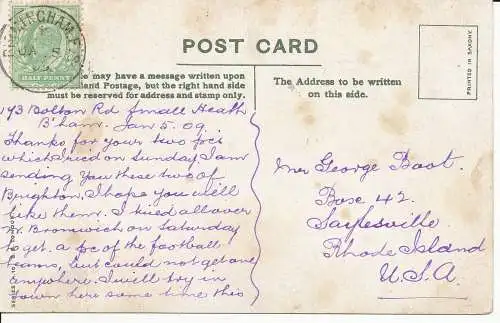 POST CARD
BIRMINGHAM
JA 5
HALF PENNY
may have a message written upon
land Postage, but the right hand side
must be reserved for address and stamp only.
The Address to be written
on this side.
PRINTED IN SAXONY.
173 Bolton Rd Small Heath
B'ham. Jan 5. 09.
Thanks for your two pcs
which I recd on Sunday I am
sending you these two of
Brighton, I hope you will
like them. I tried all over
W. Bromwich on Saturday
to get a pc of the football
teams, but could not get one
anywhere. I will try in
town here some time this
George Boot
Box 42.
Saylesville
Rhode Island
U.S.A.